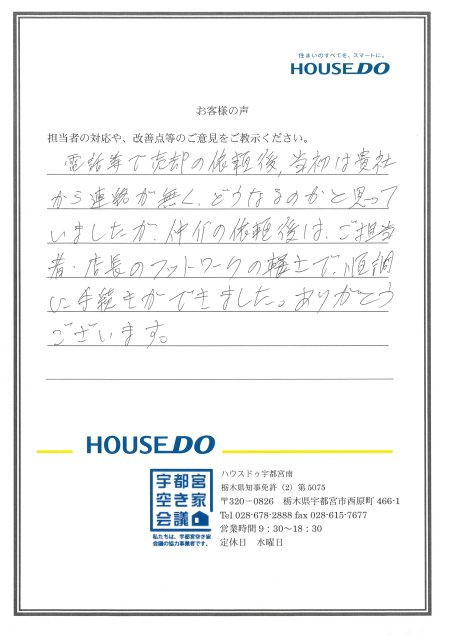 住まいのすべてを、スマートに。
HOUSEDO
お客様の声
担当者の対応や、改善点等のご意見をご教示ください。
電話等で売却の依頼後、当初は貴社
から連絡が無く、どうなるのかと思って
いましたが、仲介の依頼後は、ご担当
者・店長のフットワークの軽さで、順調
に手続きができました。ありがとう
ございます。
HOUSEDO
宇都宮
空き家
会議
私たちは、宇都宮空き家
会議の協力事業者です。
ハウスドゥ宇都宮南
栃木県知事免許（2）第5075
〒320－0826　栃木県宇都宮市西原町 466-1
Tel 028-678-2888 fax 028-615-7677
営業時間 9：30～18：30
定休日　水曜日